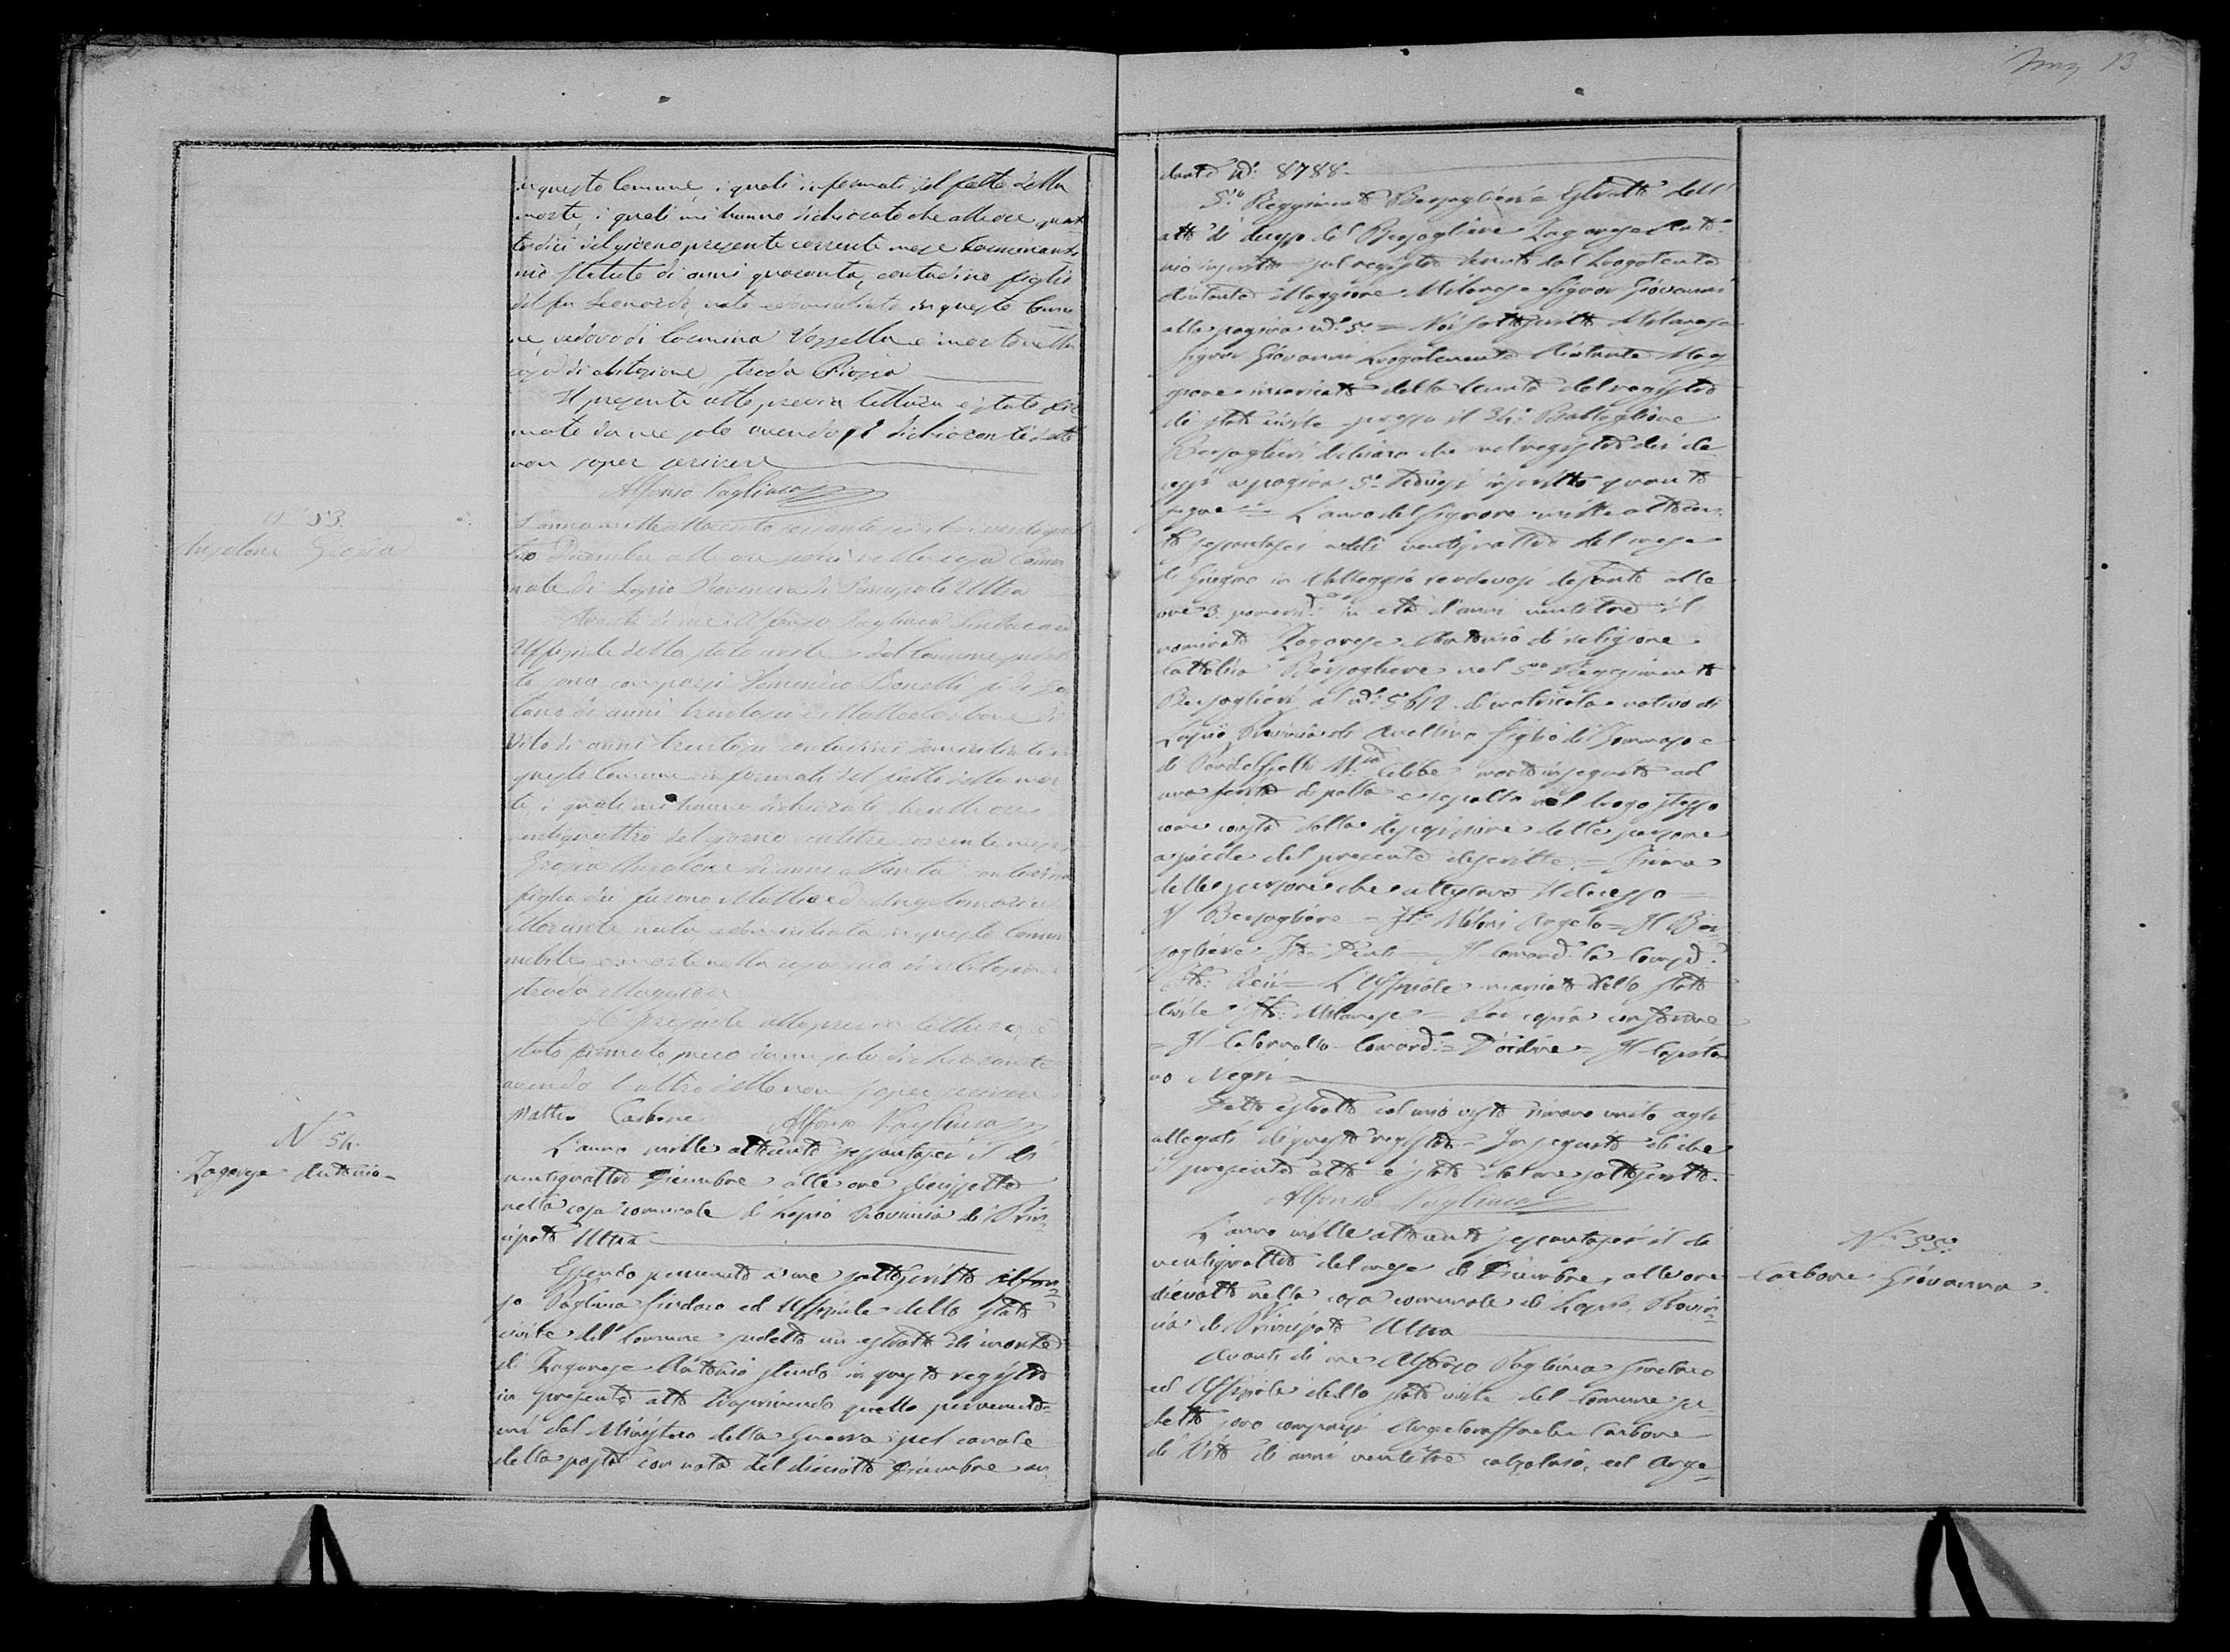 13
in questo Comune, i quali informati del fatto della
morte, i quali mi hanno dichiarato che alle ore quat
tordici del giorno presente corrente mese
nio Statuto di anni quaranta, contadino figlio
del fu Leonardo, nato e domiciliato in questo Comu
ne vedovo di Carmina Vozzella e morto nella
casa di abitazione strada
Il presente atto previa lettura è stato fir
mato da me solo avendo i dichiaranti detto
non saper scrivere
Alfonso Pagliuca
N° 53.
Anzalone Grazia
L'anno mille ottocento sessantasei il dì ventiquat
tro Dicembre alle ore sedici nella casa Comu
nale di Lapio Provincia di Principato Ultra
Avanti di me Alfonso Pagliuca Sindaco ed
Uffiziale dello stato civile del Comune suddet
to sono comparsi Domenico Donelli di Gae
tano di anni trentasei e Matteo Carbone di
Vito di anni trentasei contadini domiciliati in
questo Comune informati del fatto della mor
te, i quali mi hanno dichiarato che alle ore
ventiquattro del giorno ventitre corrente mese
Grazia Anzalone di anni ottanta contadina
figlia dei furono Matteo ed Angelamaria
Morante nata, e domiciliata in questo Comune
nubile è morta nella casa sua di abitazione
strada
Il presente atto previa lettura è
stato firmato meco da un solo dichiarante
avendo l'altro detto non saper scrivere
Matteo Carbone Alfonso Pagliuca
N° 54.
Zagarese Antonio
L'anno mille ottocento sessantasei il dì
ventiquattro Dicembre alle ore diecissette
nella casa comunale di Lapio Provincia di Prin
cipato Ultra
Essendo pervenuto a me sottoscritto Alfon
so Pagliuca Sindaco ed Uffiziale dello Stato
civile del Comune sudetto un estratto di morte
di Zagarese Antonio stendo in questo registro
il presente atto trascrivendo quello pervenuto
mi dal Ministero della Guerra pel canale
della posta con nota del diciotto Dicembre an
dante N° 8788.
5° Reggimento Bersaglieri = Estratto dell'
atto di decesso del Bersagliere Zagarese Anto
nio inserito sul registro tenuto dal Luogotenente
Aiutante Maggiore Milanese Signor Giovanni
alla pagina N° 5 = Noi sottoscritto Milanese
Signor Giovanni Luogotenente Aiutante Mag
giore incaricato della tenuta del registro
di stato civile presso il 34° Battaglione
Bersaglieri dichiara che nel registro dei de
cessi a pagina 5ª trovasi inscritto quanto
segue = L'anno del Signore mille ottocen
to sessantasei addì ventiquattro del mese
di Giugno in Valleggio rendevasi defunto alle
ore 3 pomerid. in età d'anni ventitre il
nominato Zagarese Antonio di religione
Cattolica Bersagliere nel 5° Reggimento
Bersaglieri al N° 5612 di matricola nativo di
Lapio Provincia di Avellino figlio di Tommaso e
di celibe morto in seguito ad
una ferita di palla e sepolto nel luogo stesso
come consta dalla deposizione delle persone
a piede del presente descritte = Firma
delle persone che attestano il decesso =
Il Bersagliere = F.to Milani Angelo = Il Ber
sagliere F.to = Il Comand. la Compa.
F.to = L'Uffiziale incaricato dello stato
Civile F.to Milanese = Per copia conforme
= Il Colonnello Comand. = D'ordine = Il Capita
no Negri
Detto estratto col mio visto rimane unito agli
allegati di questo registro. In seguito di che
il presente atto è stato da me sottoscritto.
Alfonso Pagliuca
N° 55.
Carbone Giovanna
L'anno mille ottocento sessantasei il dì
ventiquattro del mese di Dicembre, alle ore
dieciotto nella casa comunale di Lapio, Provin
cia di Principato Ultra
Avanti di me Alfonso Pagliuca Sindaco
ed Uffiziale dello stato civile del Comune su
detto sono comparsi Angeloraffaele Carbone
di Vito di anni ventitre calzolaio, ed Ange